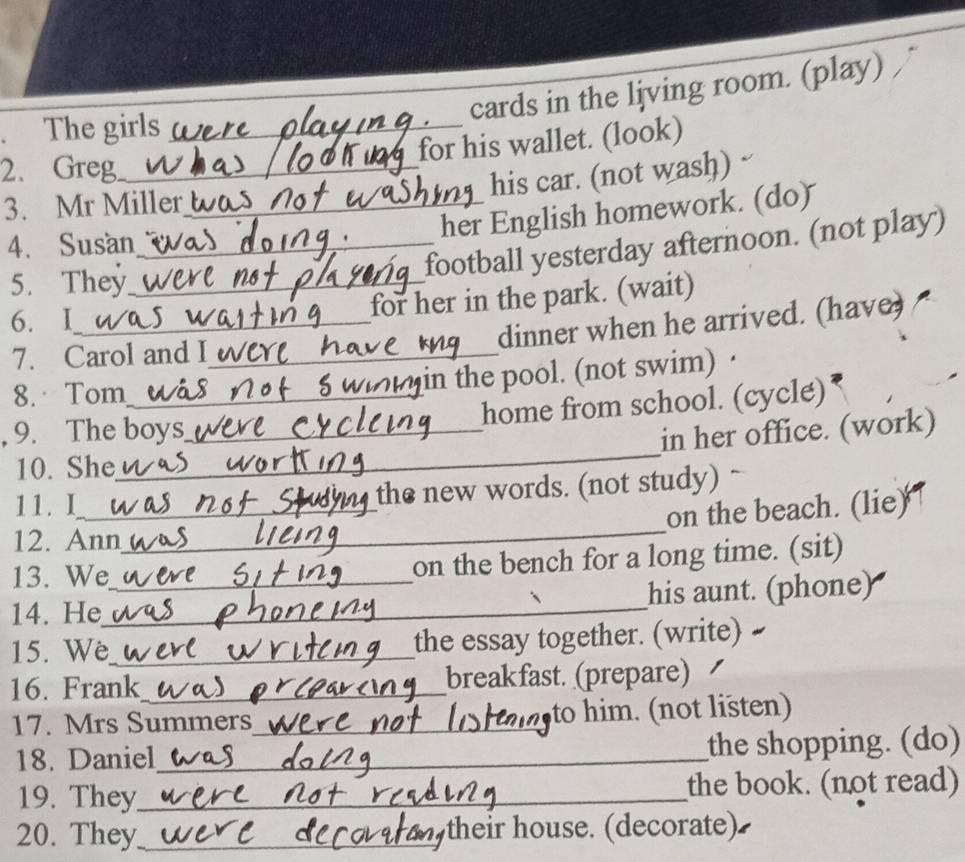 . The girls were playing. cards in the living room. (play)
2. Greg was looking for his wallet. (look)
3. Mr Miller was not washing his car. (not wash)
4. Susan was doing. her English homework. (do)
5. They were not playeng football yesterday afternoon. (not play)
6. I was waiting for her in the park. (wait)
7. Carol and I were have ing dinner when he arrived. (have)
8. Tom was not swining in the pool. (not swim)
9. The boys were cycleing home from school. (cycle)
10. She was working in her office. (work)
11. I was not studying the new words. (not study)
12. Ann was lieing on the beach. (lie)
13. We were siting on the bench for a long time. (sit)
14. He was phoneing his aunt. (phone)
15. We were writeing the essay together. (write)
16. Frank was prepareing breakfast. (prepare)
17. Mrs Summers were not listening to him. (not listen)
18. Daniel was doing the shopping. (do)
19. They were not reading the book. (not read)
20. They were their house. (decorate)